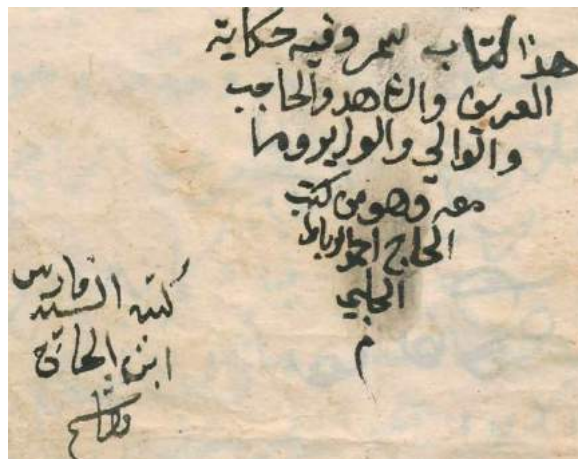 هذا كتاب سمر وفيه حكاية
العريس والشاهد والحاجب
والوالي والوزير وما
معه وهو من كتب
الحاج احمد الرباط
الحلبي
م
كتبه السيد فارس
ابن الحاج